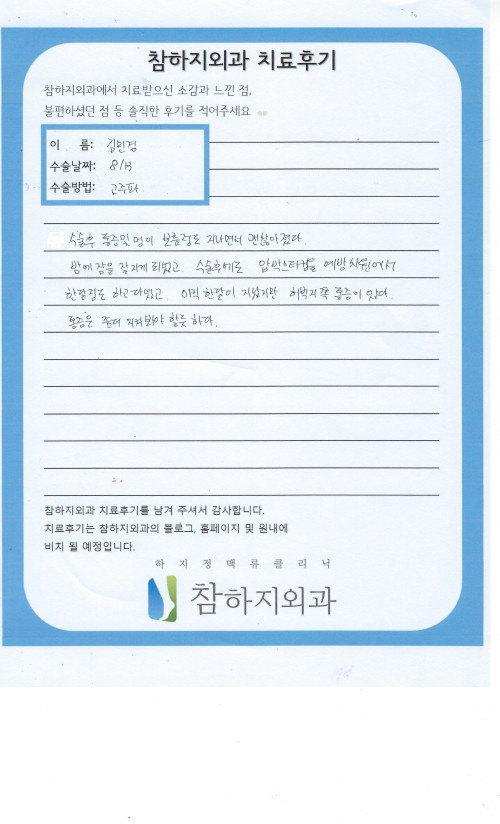 참하지외과 치료후기
참하지외과에서 치료받으신 소감과 느낀 점,
불편하셨던 점 등 솔직한 후기를 적어주세요
이 름: 김민경
수술날짜: 8/13
수술방법: 고주파.
수술후 통증및 멍이 보름정도 지나면서 괜찮아졌다.
밤에 잠을 잘자게 되었고. 수술후에도 압박스타킹을 예방차원에서
한달정도 하고다녔고. 이익한달이 지났지만 허벅지쪽 통증이 있다.
통증은 좀더 지켜봐야 할듯 하다.
참하지외과 치료후기를 남겨 주셔서 감사합니다.
치료후기는 참하지외과의 블로그, 홈페이지 및 원내에
비치 될 예정입니다.
하지정맥류클리닉
참하지외과